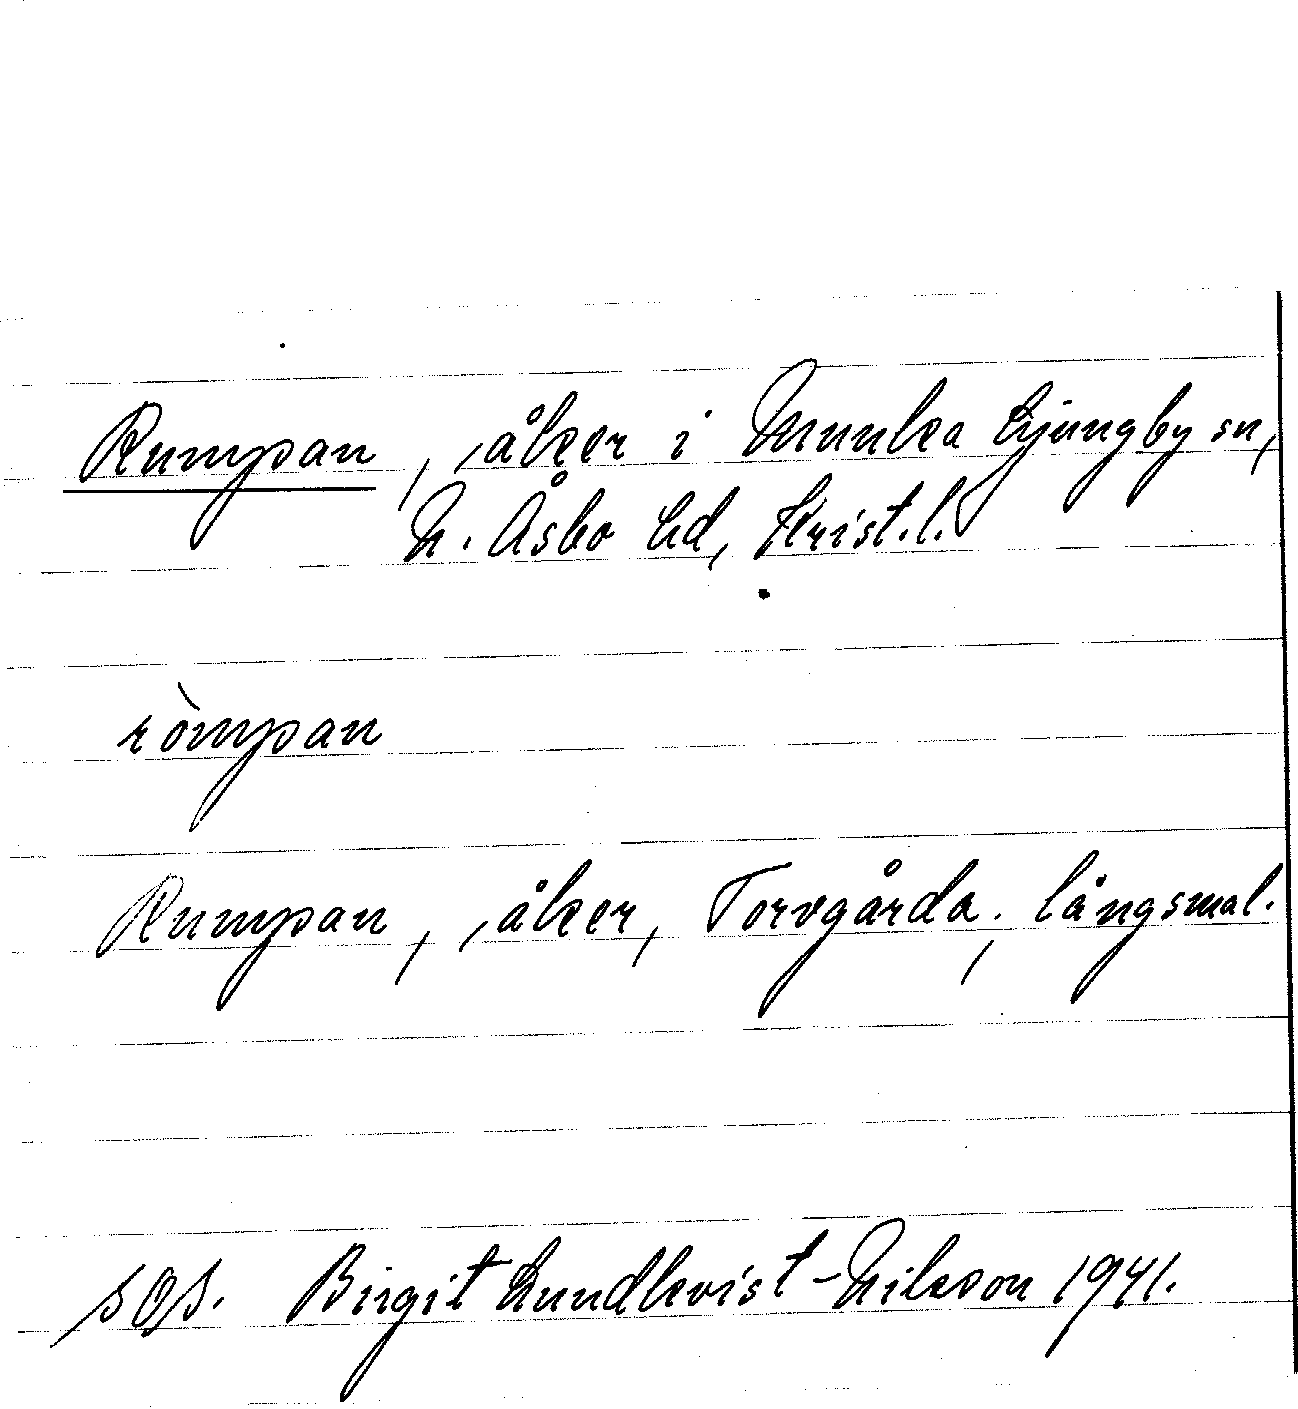 Rumpan, åker i Munka Ljungby sn,
N. Åsbo hd, Krist.l.
ròmpan
Rumpan, åker, Torvgårda, långsmal.
SOS. Birgit Lundkvist-Nilsson 1941.